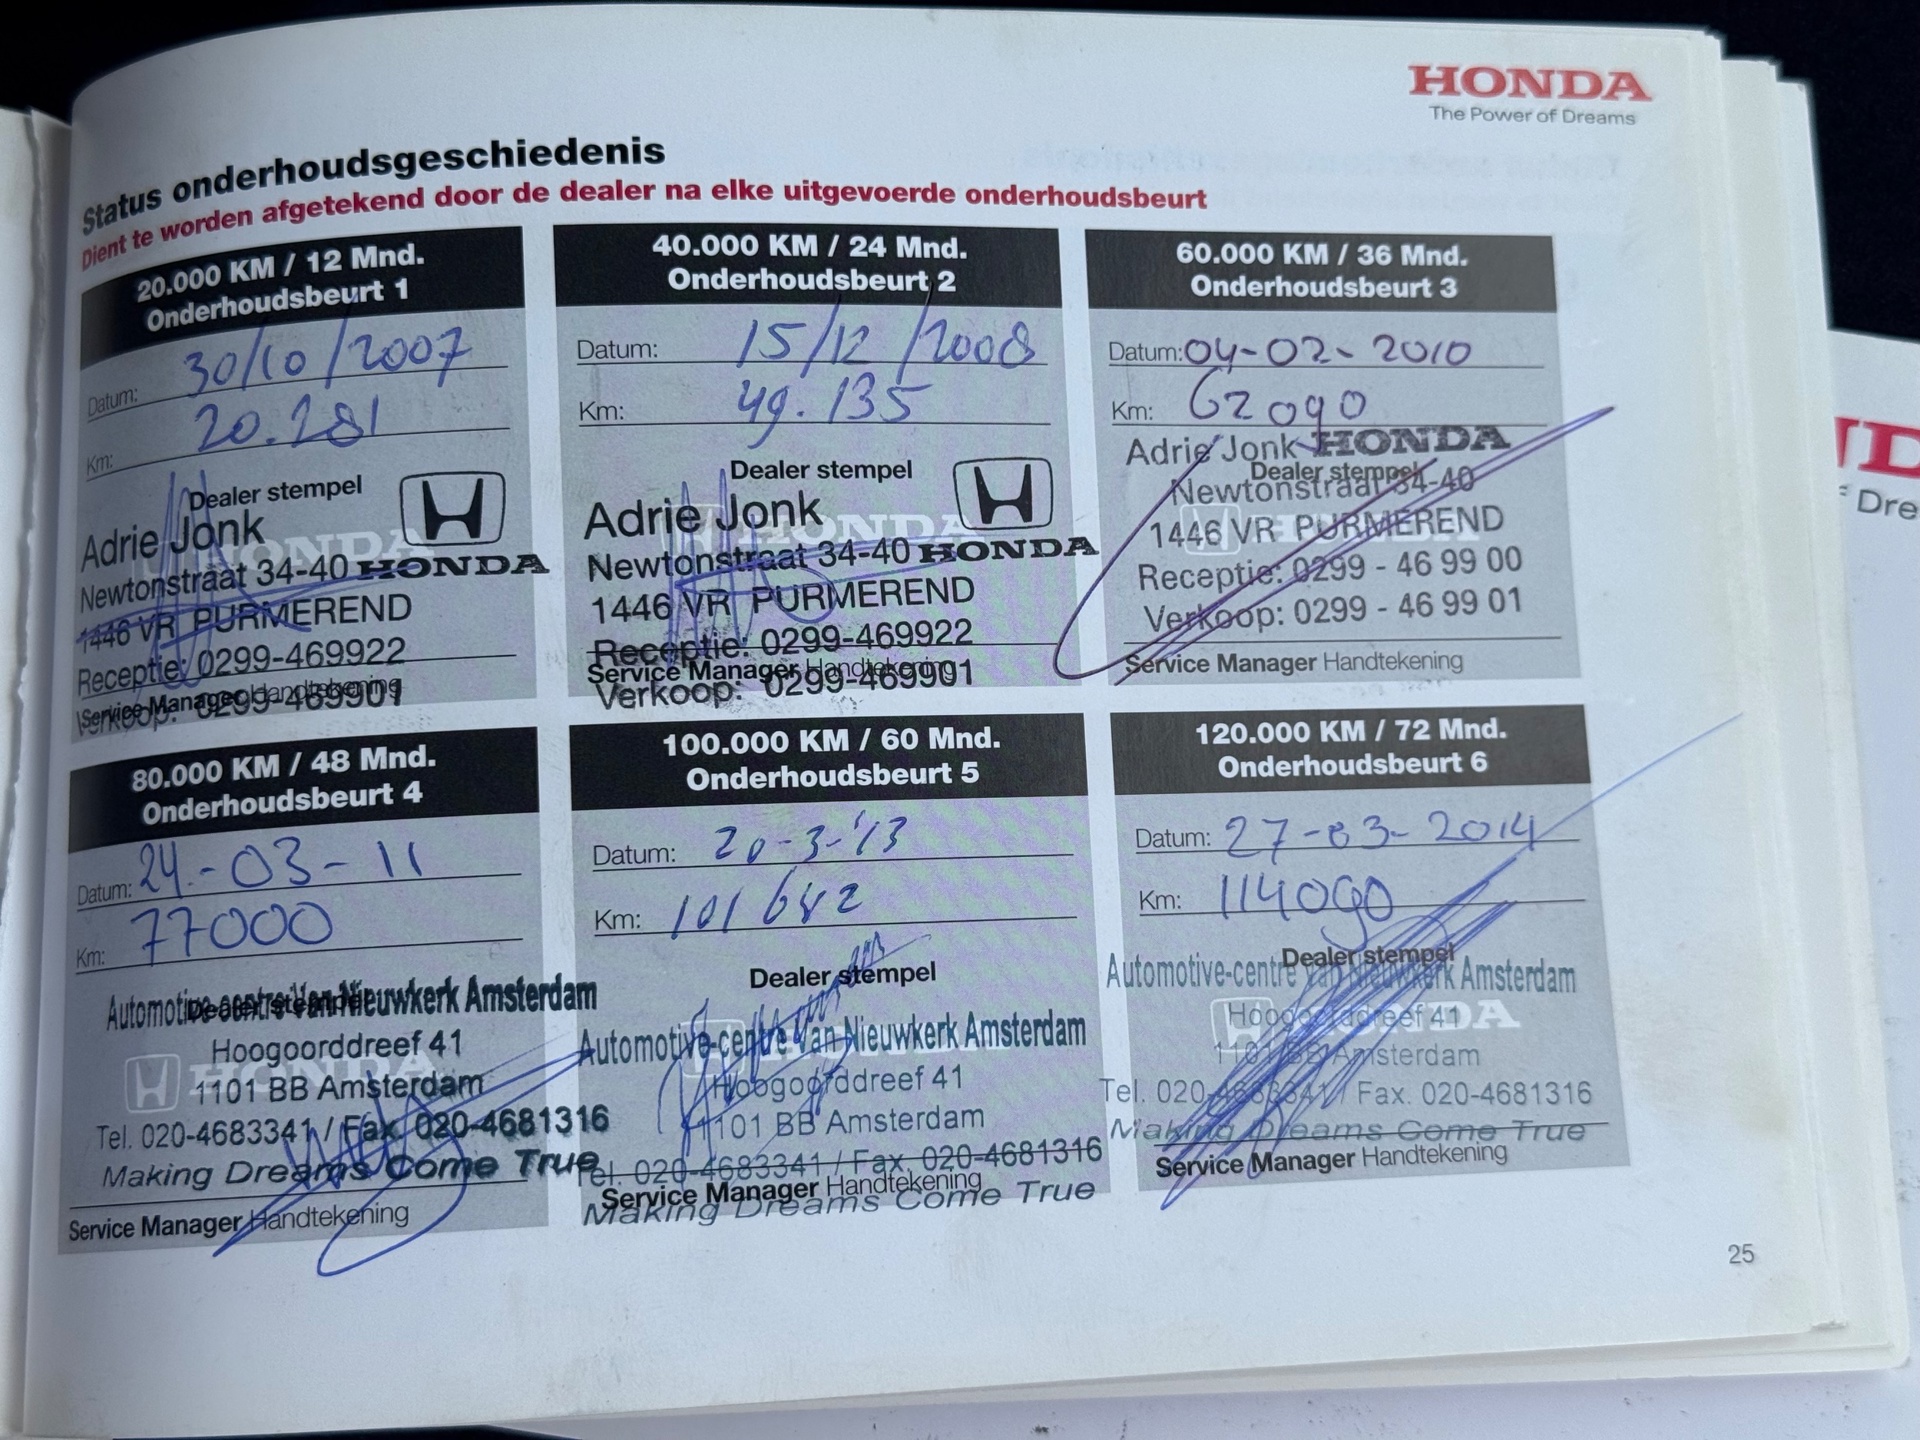 HONDA
The Power of Dreams
Status onderhoudsgeschiedenis
Dient te worden afgetekend door de dealer na elke uitgevoerde onderhoudsbeurt
20.000 KM / 12 Mnd.
Onderhoudsbeurt 1
Datum: 30/10/2007
Km: 20.281
Dealer stempel
Adrie Jonk
Newtonstraat 34-40 HONDA
1446 VR PURMEREND
Receptie: 0299-469922
Verkoop: 0299-469901
Service Manager Handtekening
40.000 KM / 24 Mnd.
Onderhoudsbeurt 2
Datum: 15/12/2008
Km: 49.135
Dealer stempel
Adrie Jonk
Newtonstraat 34-40 HONDA
1446 VR PURMEREND
Receptie: 0299-469922
Service Manager Handtekening
Verkoop: 0299-469901
60.000 KM / 36 Mnd.
Onderhoudsbeurt 3
Datum: 04-02-2010
Km: 62090
Adrie Jonk HONDA
Dealer stempel
Newtonstraat 34-40
1446 VR PURMEREND
Receptie: 0299 - 46 99 00
Verkoop: 0299 - 46 99 01
Service Manager Handtekening
80.000 KM / 48 Mnd.
Onderhoudsbeurt 4
Datum: 24-03-11
Km: 77000
Dealer stempel
Automotive-centre Van Nieuwkerk Amsterdam
Hoogoorddreef 41
HONDA
1101 BB Amsterdam
Tel. 020-4683341 / Fax. 020-4681316
Making Dreams Come True
Service Manager Handtekening
100.000 KM / 60 Mnd.
Onderhoudsbeurt 5
Datum: 20-3-'13
Km: 101642
Dealer stempel
Automotive-centre Van Nieuwkerk Amsterdam
Hoogoorddreef 41
1101 BB Amsterdam
Tel. 020-4683341 / Fax. 020-4681316
Service Manager Handtekening
Making Dreams Come True
120.000 KM / 72 Mnd.
Onderhoudsbeurt 6
Datum: 27-03-2014
Km: 114090
Dealer stempel
Automotive-centre Van Nieuwkerk Amsterdam
Hoogoorddreef 41
HONDA
1101 BB Amsterdam
Tel. 020-4683341 / Fax. 020-4681316
Making Dreams Come True
Service Manager Handtekening
25